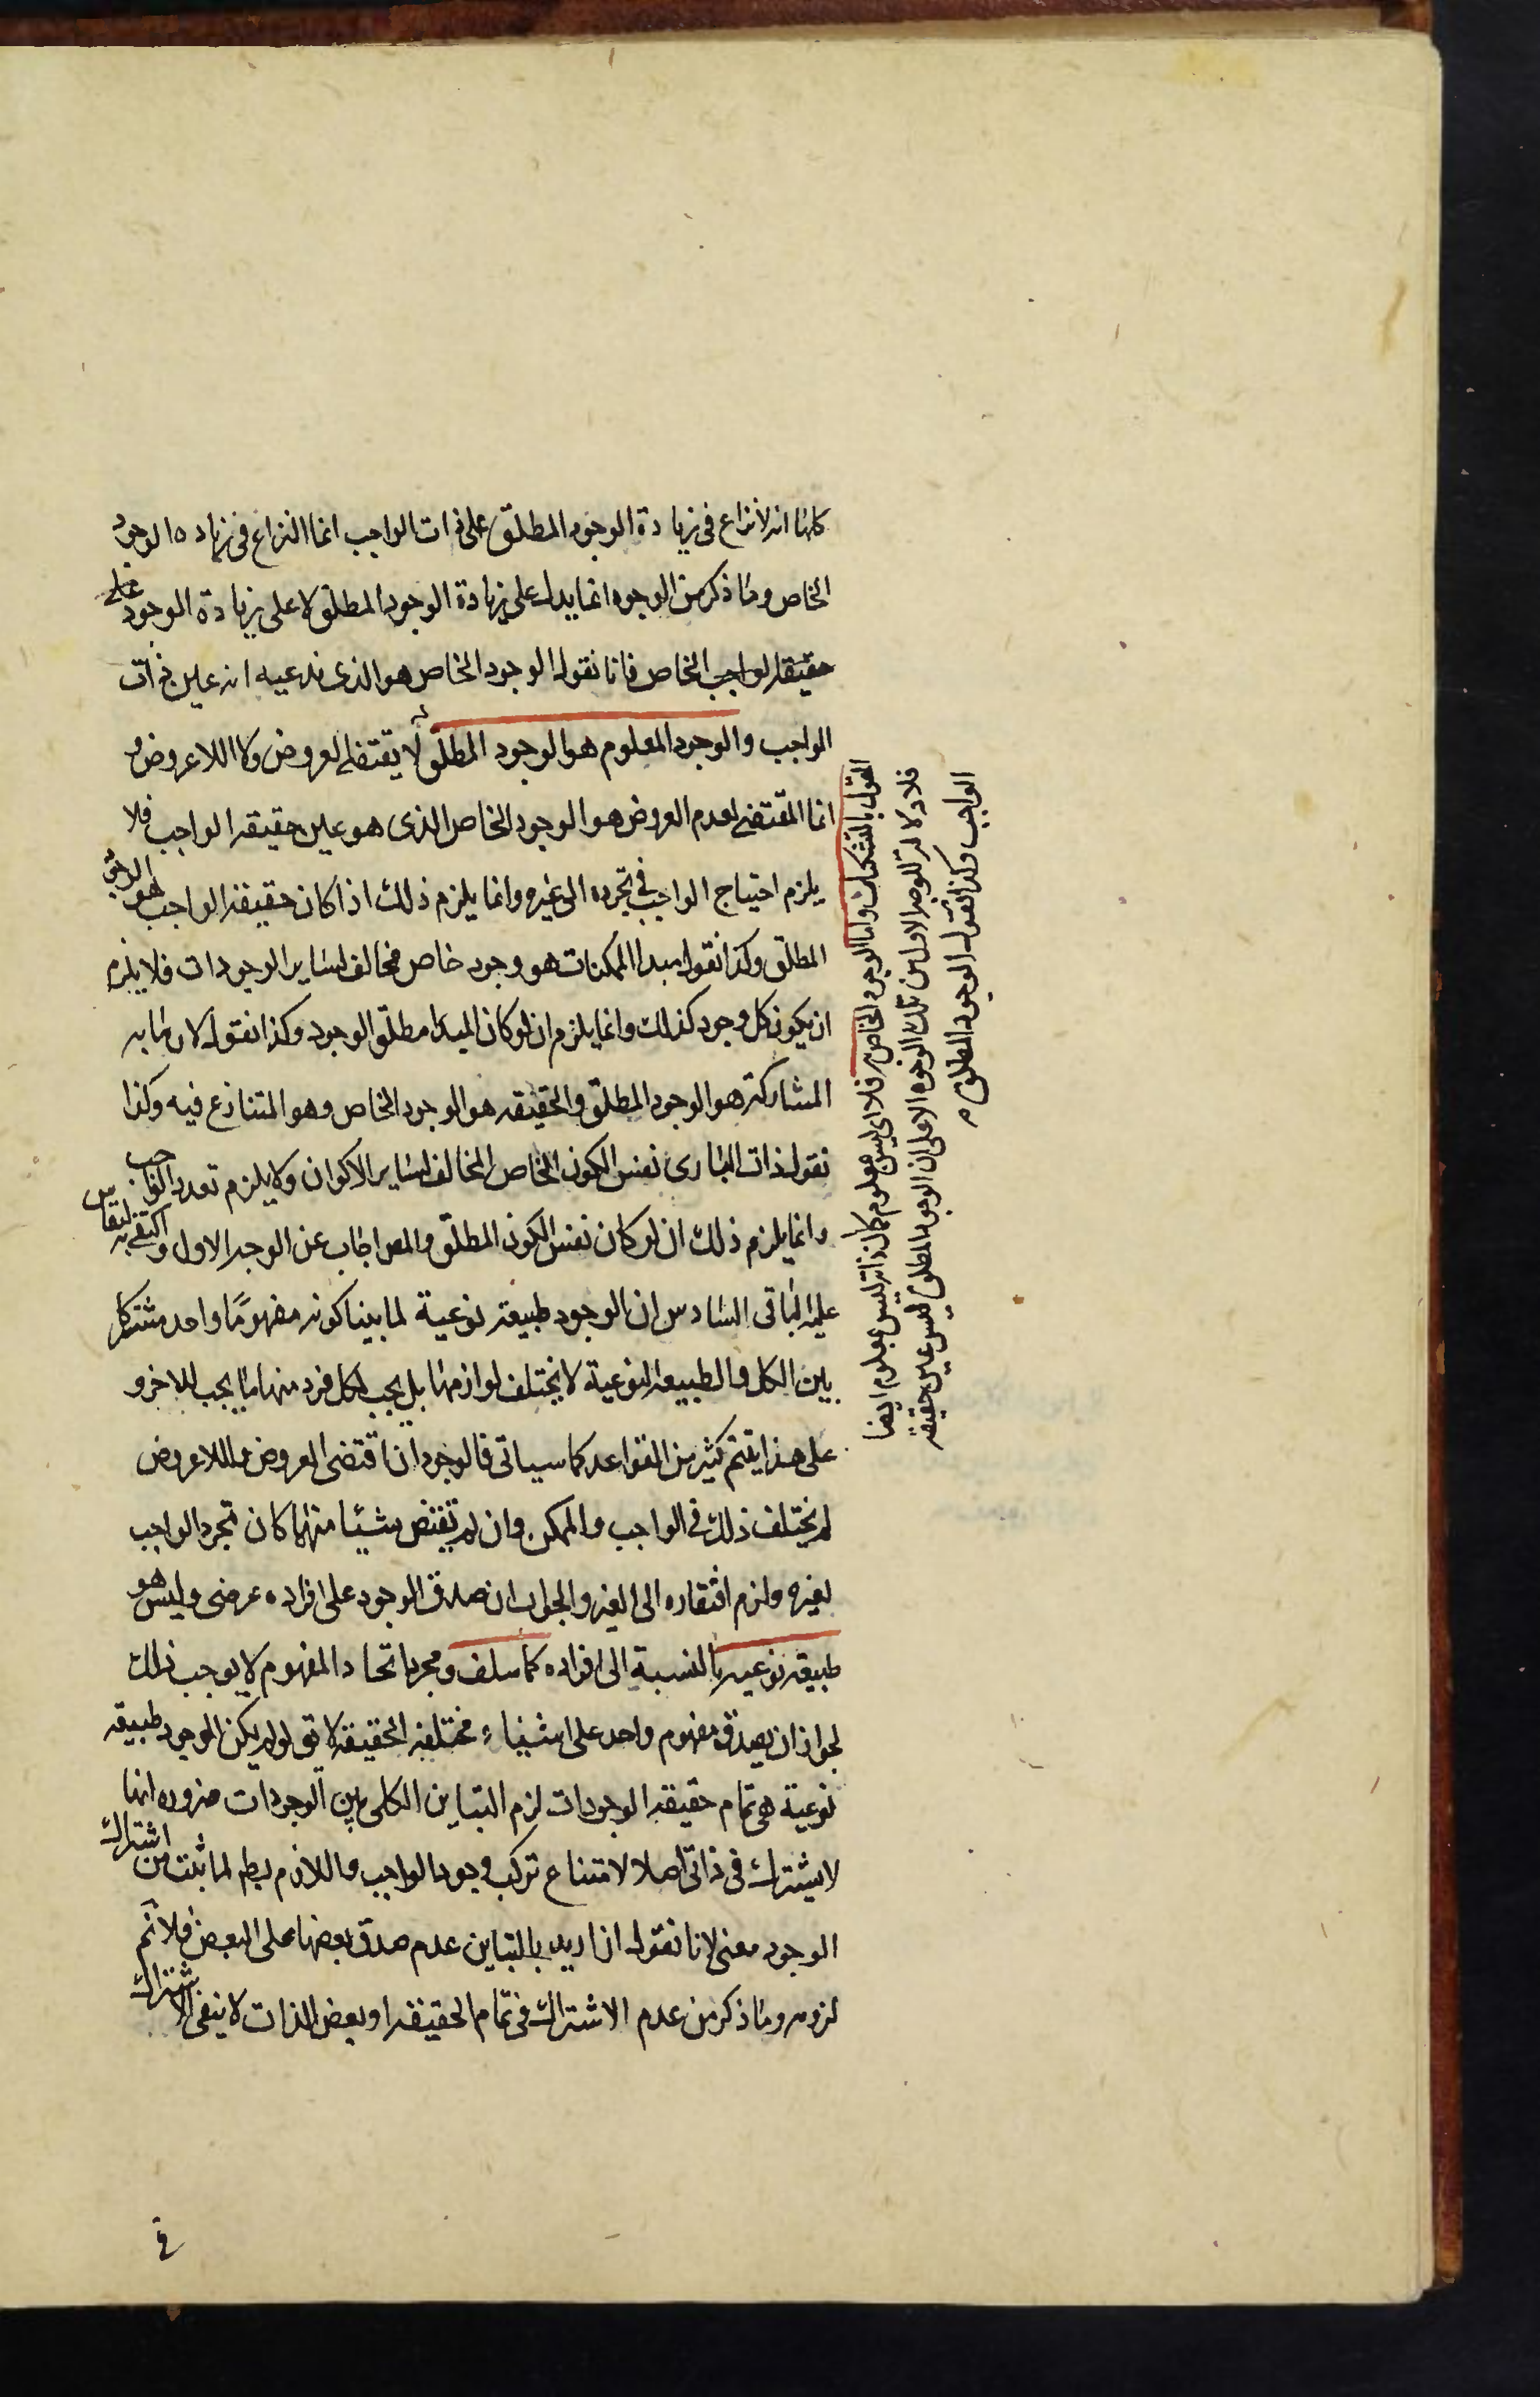 كلها انه لا نزاع فى زيادة الوجود المطلق على ذات الواجب انما النزاع فى زياده الوجود
الخاص وما ذكر من الوجوه انما يدل على زيادة الوجود المطلق لا على زيادة الوجود على
حقيقه الواجب الخاص فانا نقول الوجود الخاص هو الذى ندعيه انه عين ذات
الواجب والوجود المعلوم هو الوجود المطلق لا يقتضى العروض ولا اللاعروض و
انما المقتضى لعدم العروض هو الوجود الخاص الذى هو عين حقيقه الواجب فلا
يلزم احتياج الواجب فى تجرده الى غيره وانما يلزم ذلك اذا كان حقيقه الواجب هو الوجود
المطلق وكذا نقول مبدا الممكنات هو وجود خاص مخالف لساير الوجودات فلا يلزم
ان يكون كل وجود كذلك وانما يلزم ان لو كان المبدا مطلق الوجود وكذا نقول لان ما به
المشاركة هو الوجود المطلق والحقيقه هو الوجود الخاص وهو المتنازع فيه وكذا
نقول ذات البارى نفس الكون الخاص المخالف لساير الاكوان ولا يلزم تعدد الواجب
وانما يلزم ذلك ان لو كان نفس الكون المطلق والمص اجاب عن الوجه الاول واكتفى به ليقاس
عليه الباقى السادس ان الوجود طبيعة نوعية لما بينا كونه مفهومًا واحد مشتركا
بين الكل والطبيعه النوعية لا يختلف لوازمها بل يجب لكل فرد منها ما يجب للاخر و
على هذا يبتنى كثير من القواعد كما سياتى فالوجود ان اقتضى العروض واللاعروض
لم يختلف ذلك فى الواجب والممكن وان لم يقتض شيئا منهما كان تجرد الواجب
لغيره ولزم افتقاره الى الغير والجواب ان صدق الوجود على افراده عرضى وليس هو
طبيعه نوعيه بالنسبة الى افراده كما سلف ومجرد اتحاد المفهوم لا يوجب ذلك
لجواز ان يصدق مفهوم واحد على اشياء مختلفه الحقيقه لا يق لو لم يكن الوجود طبيعه
نوعية هى تمام حقيقه الوجودات لزم التباين الكلى بين الوجودات ضروره انها
لا يشترك فى ذاتى اصلا لامتناع تركب وجود الواجب واللازم بط لما ثبت من اشتراك
الوجود معنى لانا نقول ان اريد بالتباين عدم صدق بعضها على البعض فلا نم
لزومه وما ذكر من عدم الاشتراك فى تمام الحقيقه او بعض الذات لا ينفى الاشتراك
القول بالتشكيك واما الوجود الخاص فلا اى ليس معلوم كما ان ذاته ليس معلوم ايضا
فلا دلالة للوجه الاول من تلك الوجوه الا على ان الوجود المطلق ليس عين حقيقه
الواجب وكذا نقول الوجود المطلق